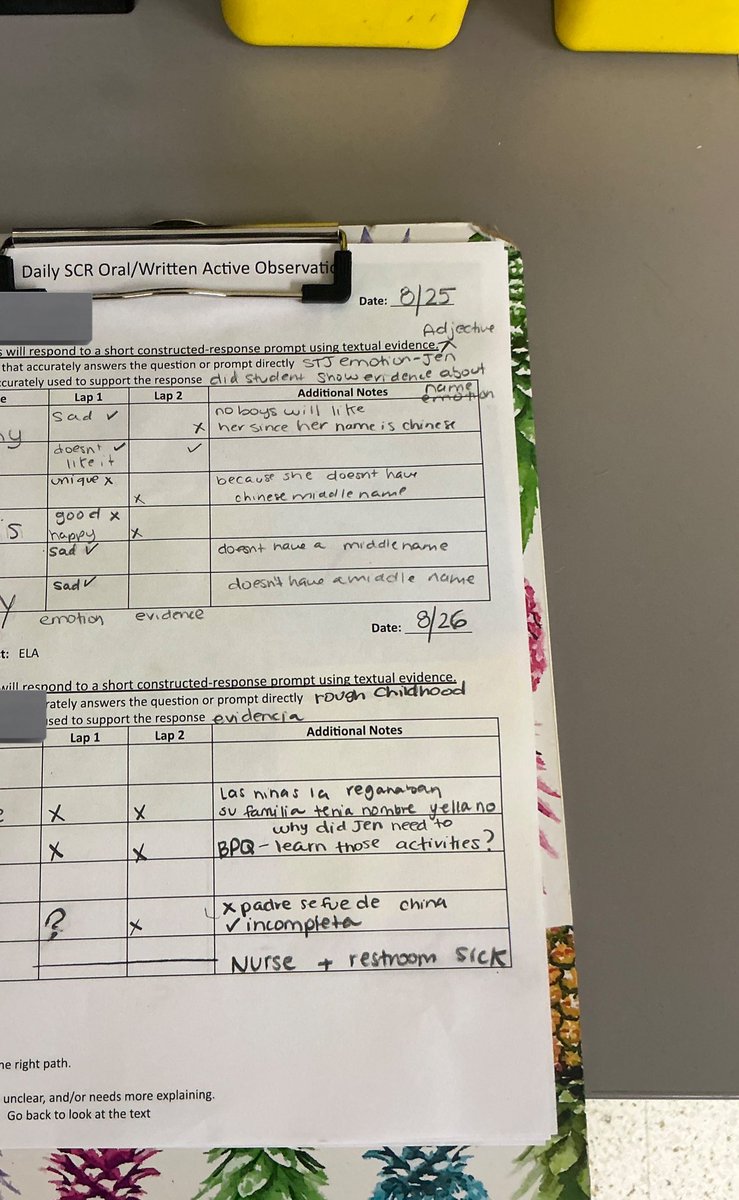 Daily SCR Oral/Written Active Observatio
Date: 8/25
Adjective
s will respond to a short constructed-response prompt using textual evidence.
that accurately answers the question or prompt directly STJ emotion-Jen
ccurately used to support the response did student show evidence about
name
emotion
e Lap 1 Lap 2 Additional Notes
sad ✓ no boys will like
x her since her name is chinese
doesnt ✓ ✓
like it
unique x because she doesnt have
x chinese middle name
good x
happy x
sad ✓ doesnt have a middle name
sad ✓ doesn't have a middle name
emotion evidence
Date: 8/26
t: ELA
will respond to a short constructed-response prompt using textual evidence.
rately answers the question or prompt directly rough childhood
used to support the response evidencia
Lap 1 Lap 2 Additional Notes
Las ninas la reganaban
e X X su familia tenia nombre y ella no
why did Jen need to
X X BPQ - learn those activities?
? X x padre se fue de china
✓ incompleta
Nurse + restroom sick
he right path.
unclear, and/or needs more explaining.
Go back to look at the text